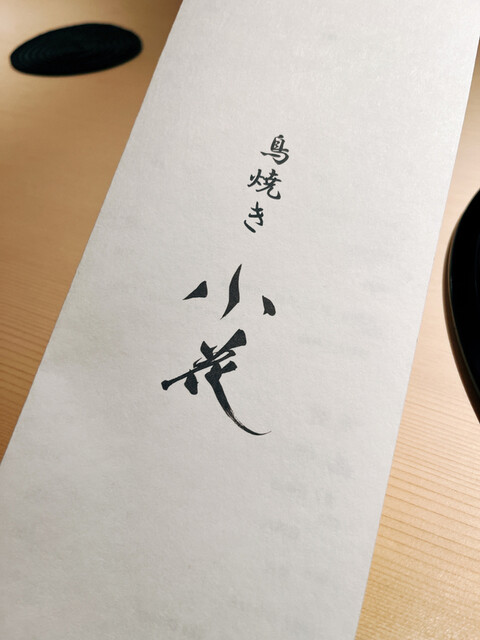 鳥焼き
小花